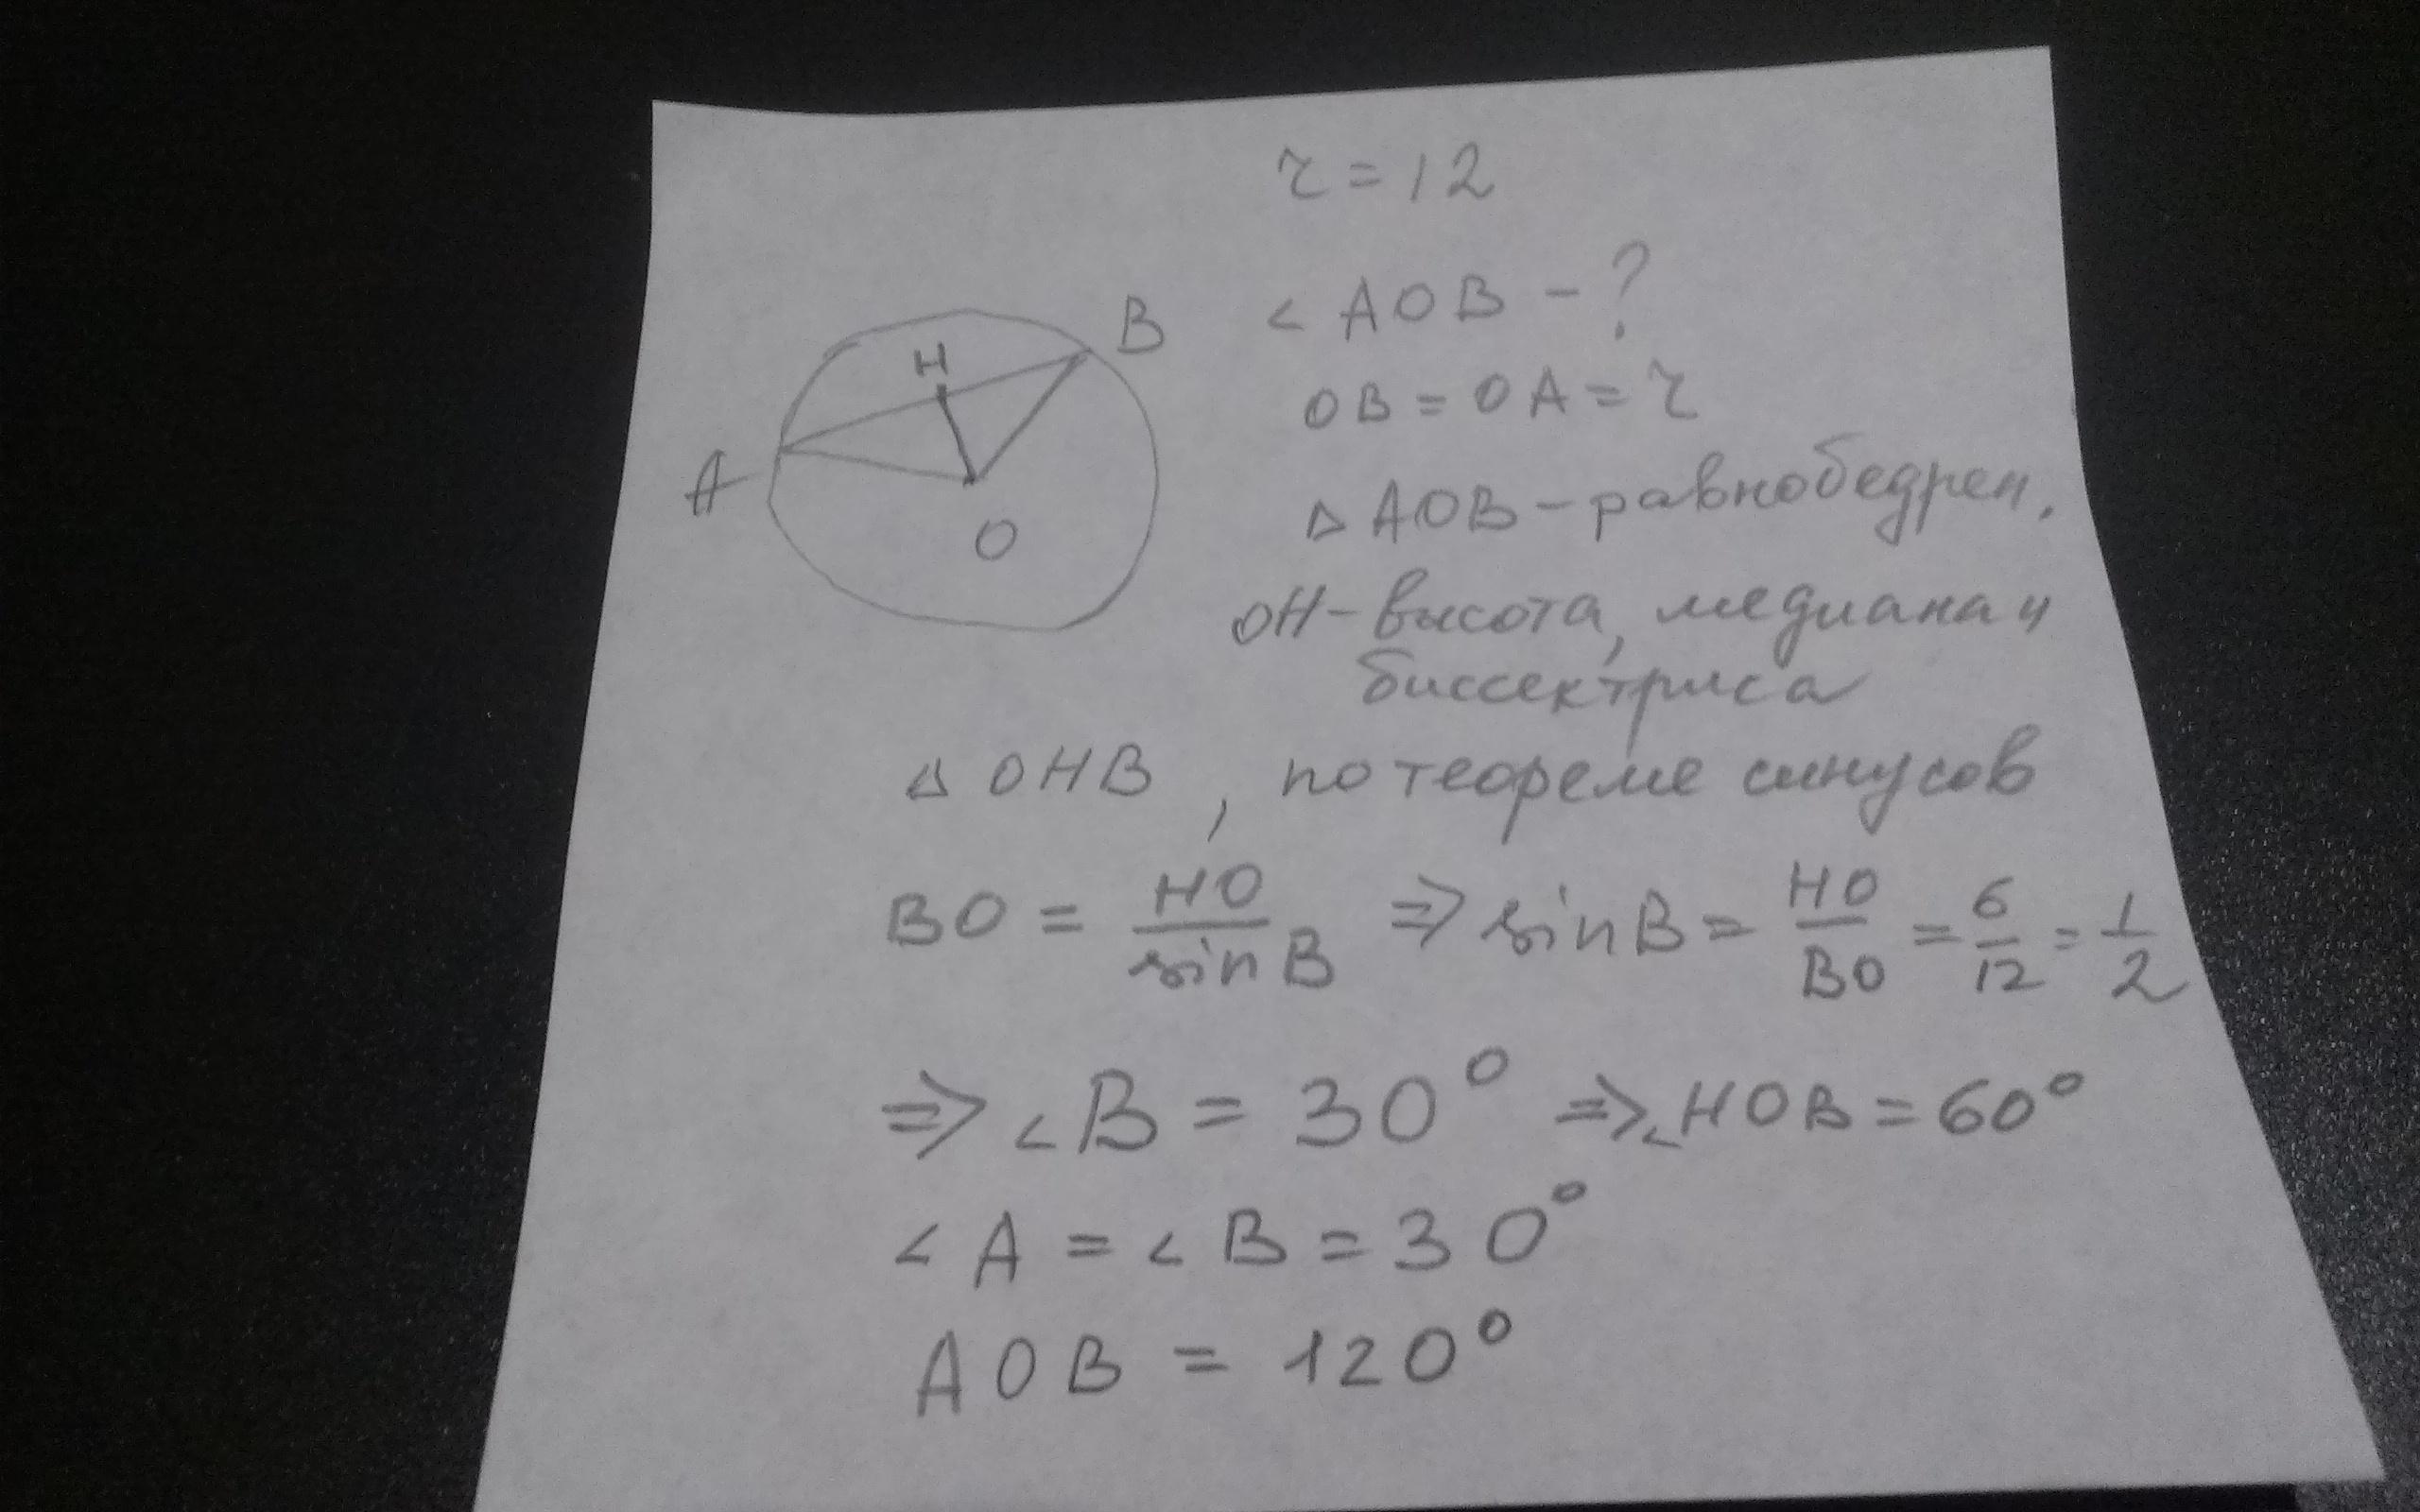 r = 12
∠ AOB - ?
OB = OA = r
Δ AOB - равнобедрен.
OH - высота, медиана и
биссектриса
B
H
A
O
Δ OHB , по теореме синусов
BO = HO/sin B ⇒ sin B = HO/BO = 6/12 = 1/2
⇒ ∠B = 30° ⇒ ∠HOB = 60°
∠A = ∠B = 30°
AOB = 120°